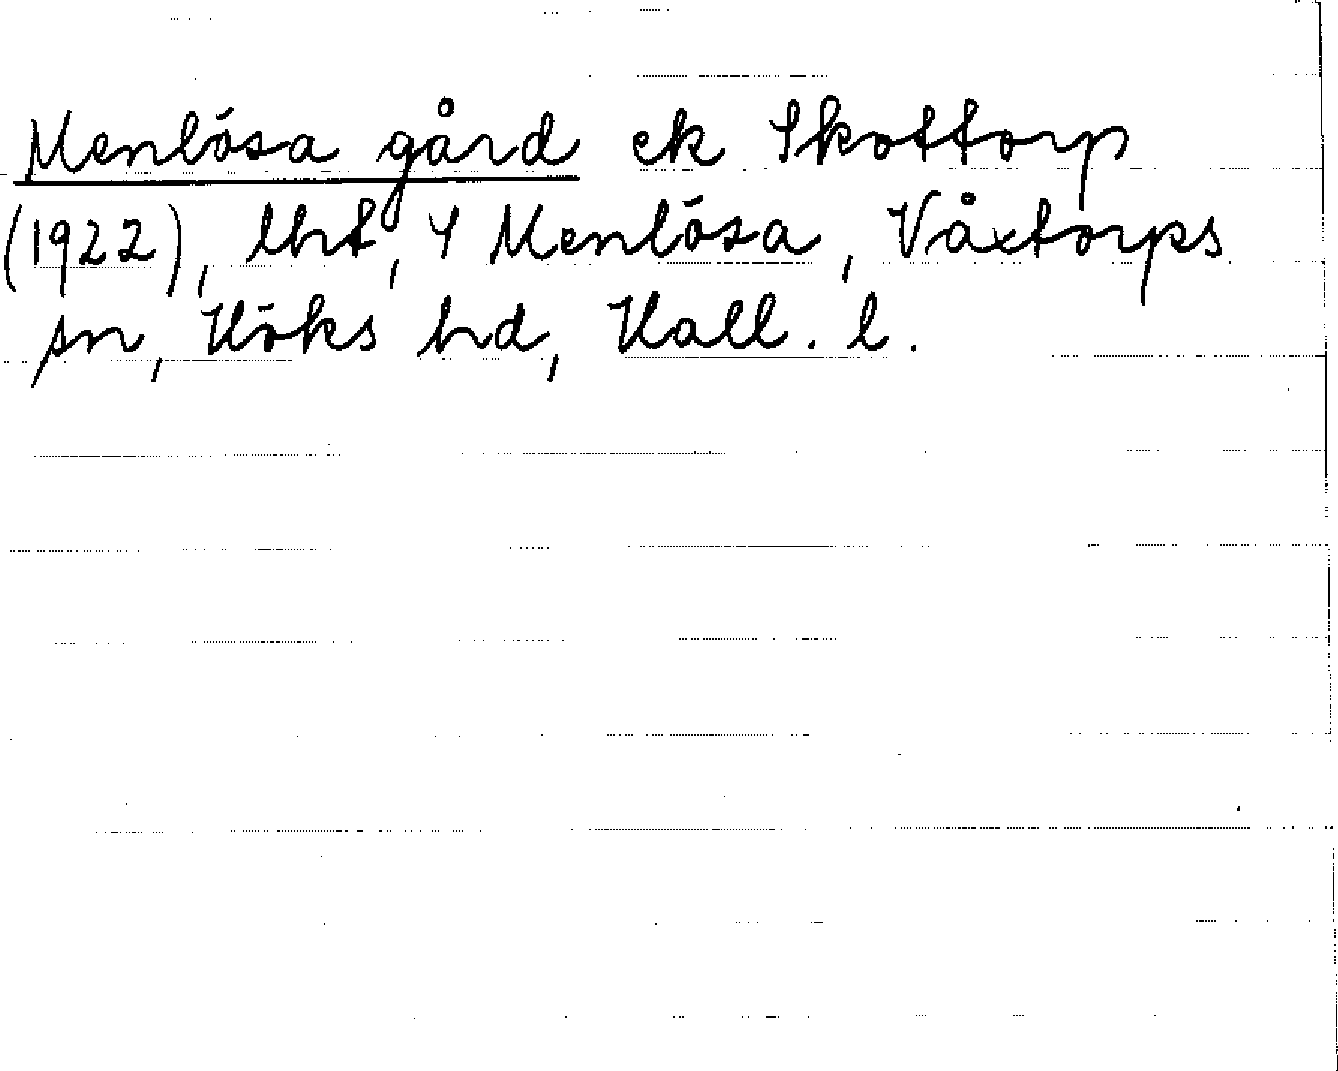 Menlösa gård ek Skottorp
(1922), lht, 4 Menlösa, Våxtorps
sn, Höks hd, Hall. l.